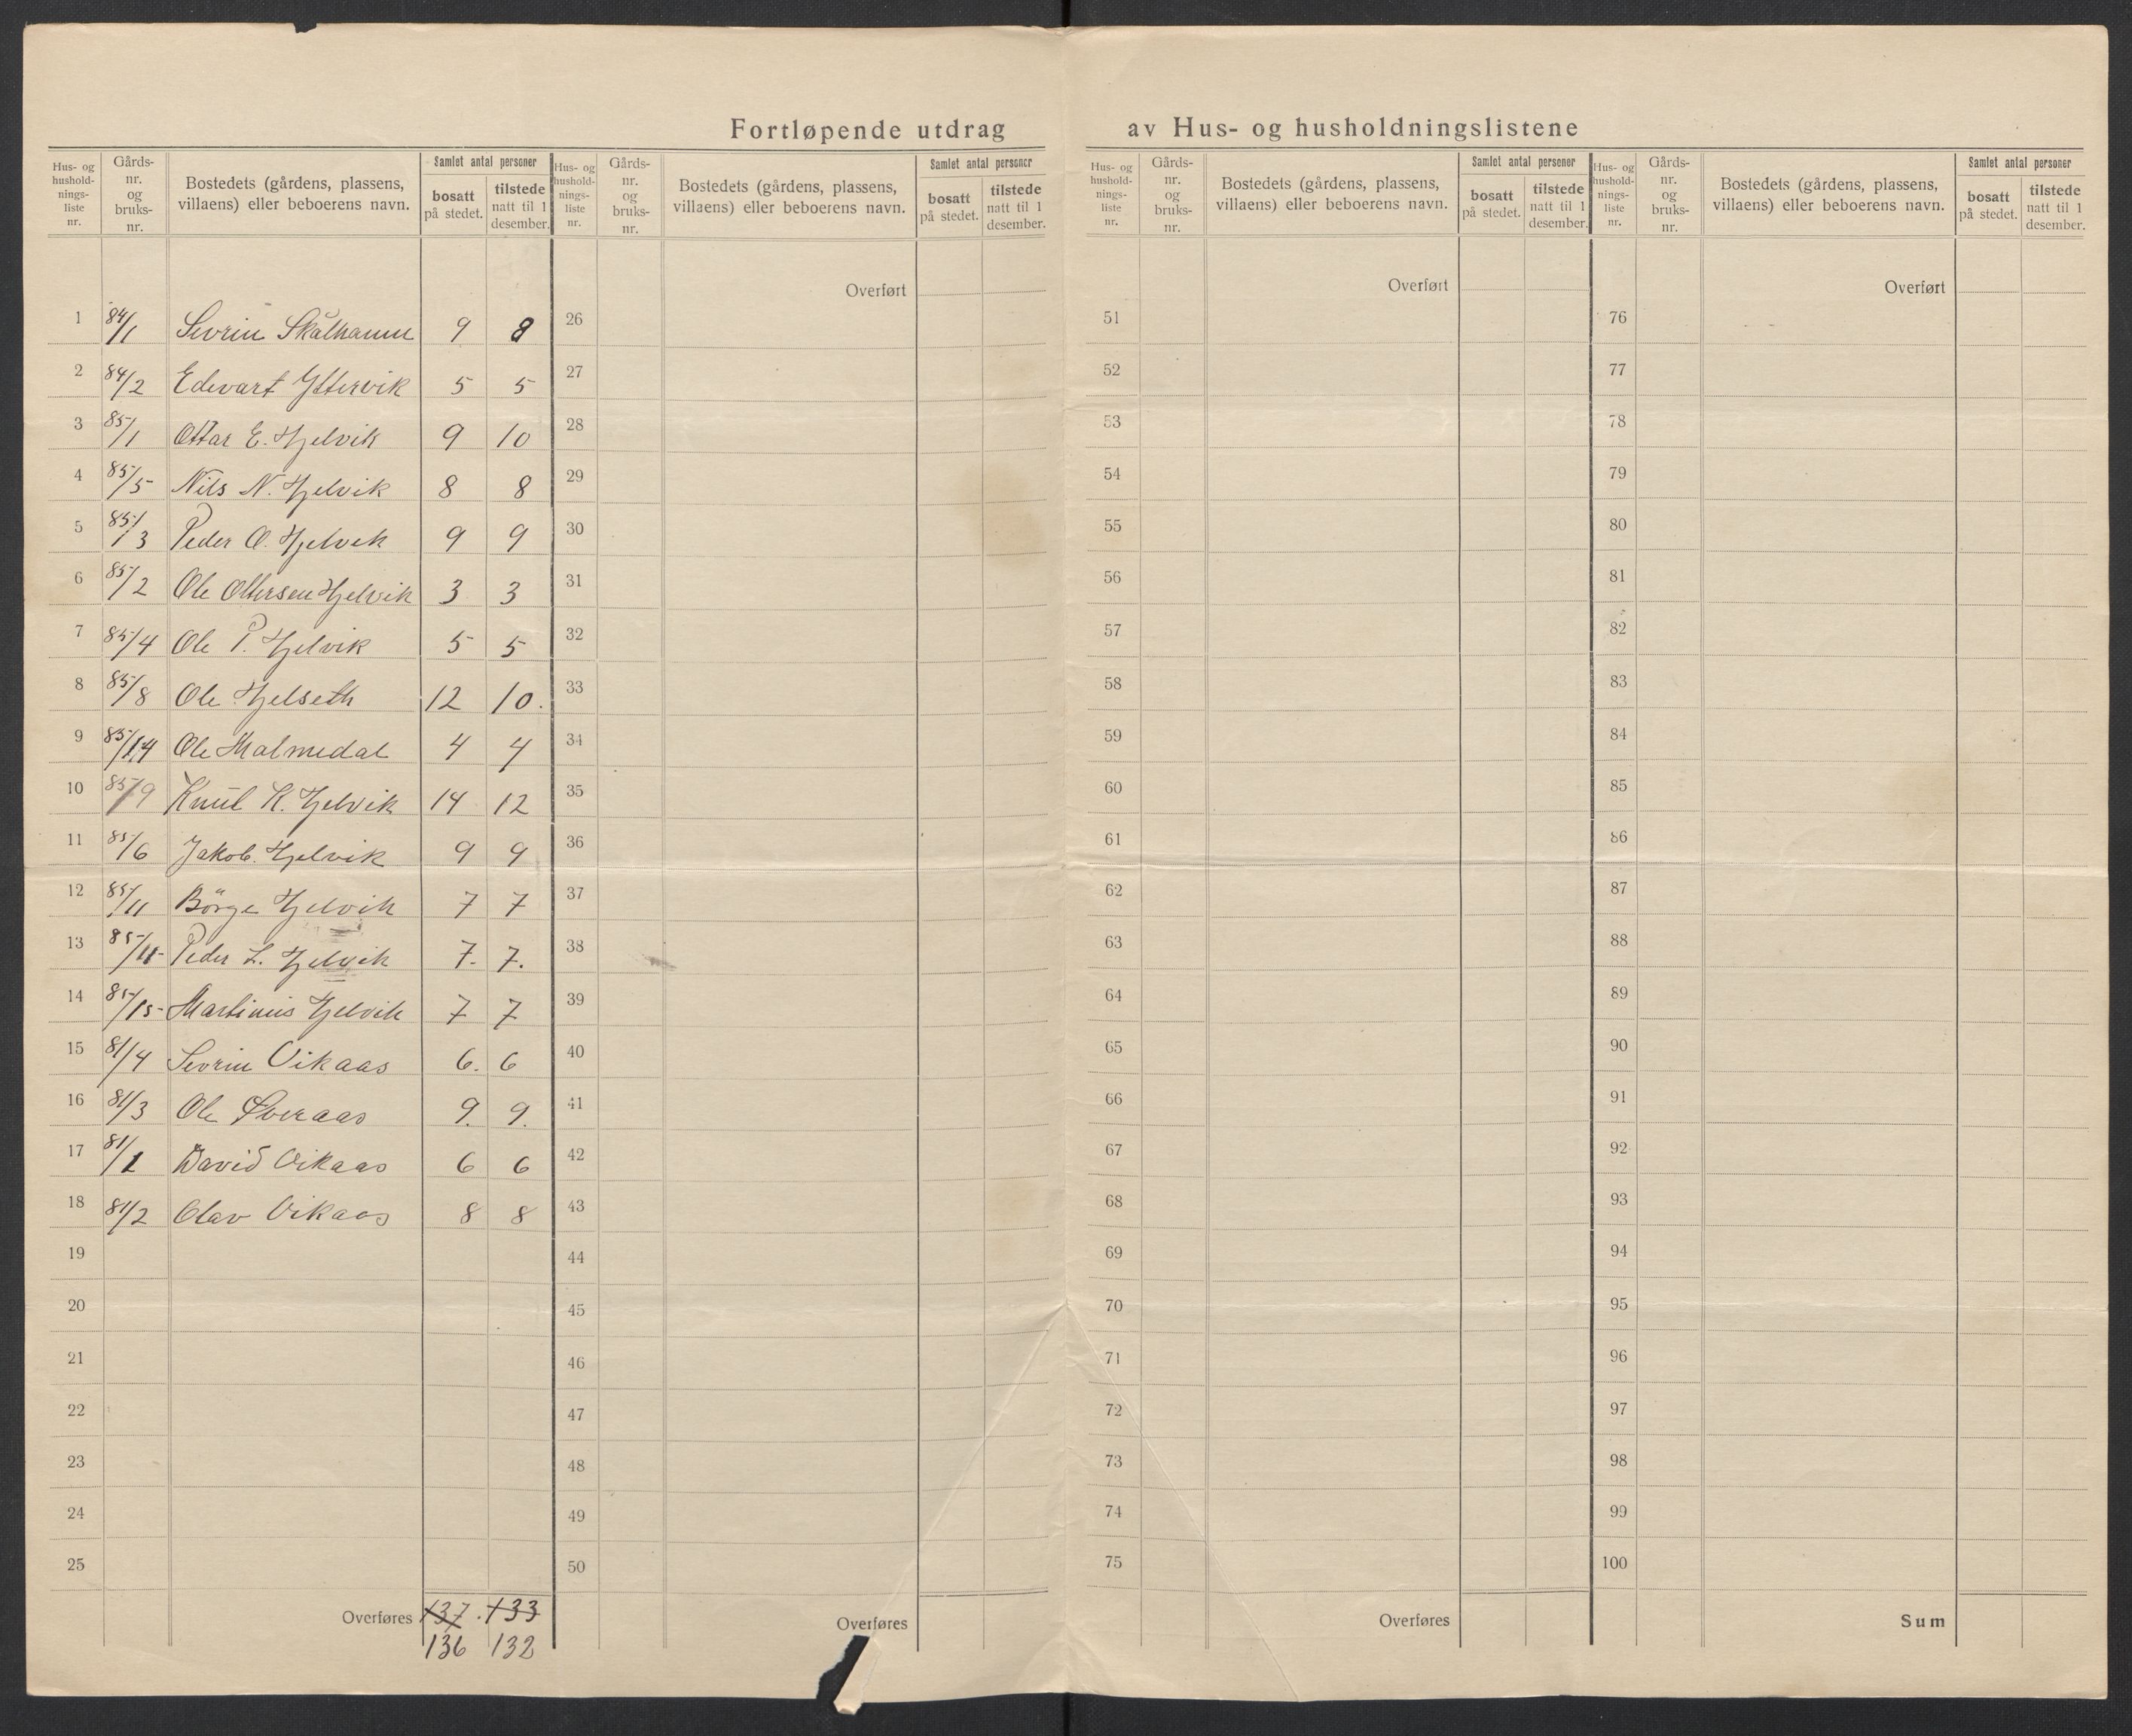 Fortløpende utdrag av Hus- og husholdningslistene
Hus- og hushold-nings-liste nr. Gårds-nr. og bruks-nr. Bostedets (gårdens, plassens, villaens) eller beboerens navn. Samlet antal personer bosatt på stedet. tilstede natt til 1 desember.
Hus- og hushold-nings-liste nr. Gårds-nr. og bruks-nr. Bostedets (gårdens, plassens, villaens) eller beboerens navn. Samlet antal personer bosatt på stedet. tilstede natt til 1 desember.
Hus- og hushold-nings-liste nr. Gårds-nr. og bruks-nr. Bostedets (gårdens, plassens, villaens) eller beboerens navn. Samlet antal personer bosatt på stedet. tilstede natt til 1 desember.
Hus- og hushold-nings-liste nr. Gårds-nr. og bruks-nr. Bostedets (gårdens, plassens, villaens) eller beboerens navn. Samlet antal personer bosatt på stedet. tilstede natt til 1 desember.
1 84/1 Sevrin Skålhamn 9 8
2 84/2 Edevart Yttervik 5 5
3 85/1 Ottar E. Hjelvik 9 10
4 85/5 Nils N. Hjelvik 8 8
5 85/3 Peder O. Hjelvik 9 9
6 85/2 Ole Ottersen Hjelvik 3 3
7 85/4 Ole P. Hjelvik 5 5
8 85/8 Ole Hjelseth 12 10.
9 85/14 Ole Malmedal 4 4
10 85/9 Knut K. Hjelvik 14 12
11 85/6 Jakob. Hjelvik 9 9
12 85/11 Börge Hjelvik 7 7
13 85/11- Peder L. Hjelvik 7. 7.
14 85/15- Martinus Hjelvik 7 7
15 81/4 Sevrin Vikaas 6. 6
16 81/3 Ole Øveraas 9. 9.
17 81/1 David Vikaas 6 6
18 81/2 Olav Vikaas 8 8
19
20
21
22
23
24
25
Overføres 137. 133
136 132
Overført
26
27
28
29
30
31
32
33
34
35
36
37
38
39
40
41
42
43
44
45
46
47
48
49
50
Overføres
Overført
51
52
53
54
55
56
57
58
59
60
61
62
63
64
65
66
67
68
69
70
71
72
73
74
75
Overføres
Overført
76
77
78
79
80
81
82
83
84
85
86
87
88
89
90
91
92
93
94
95
96
97
98
99
100
Sum